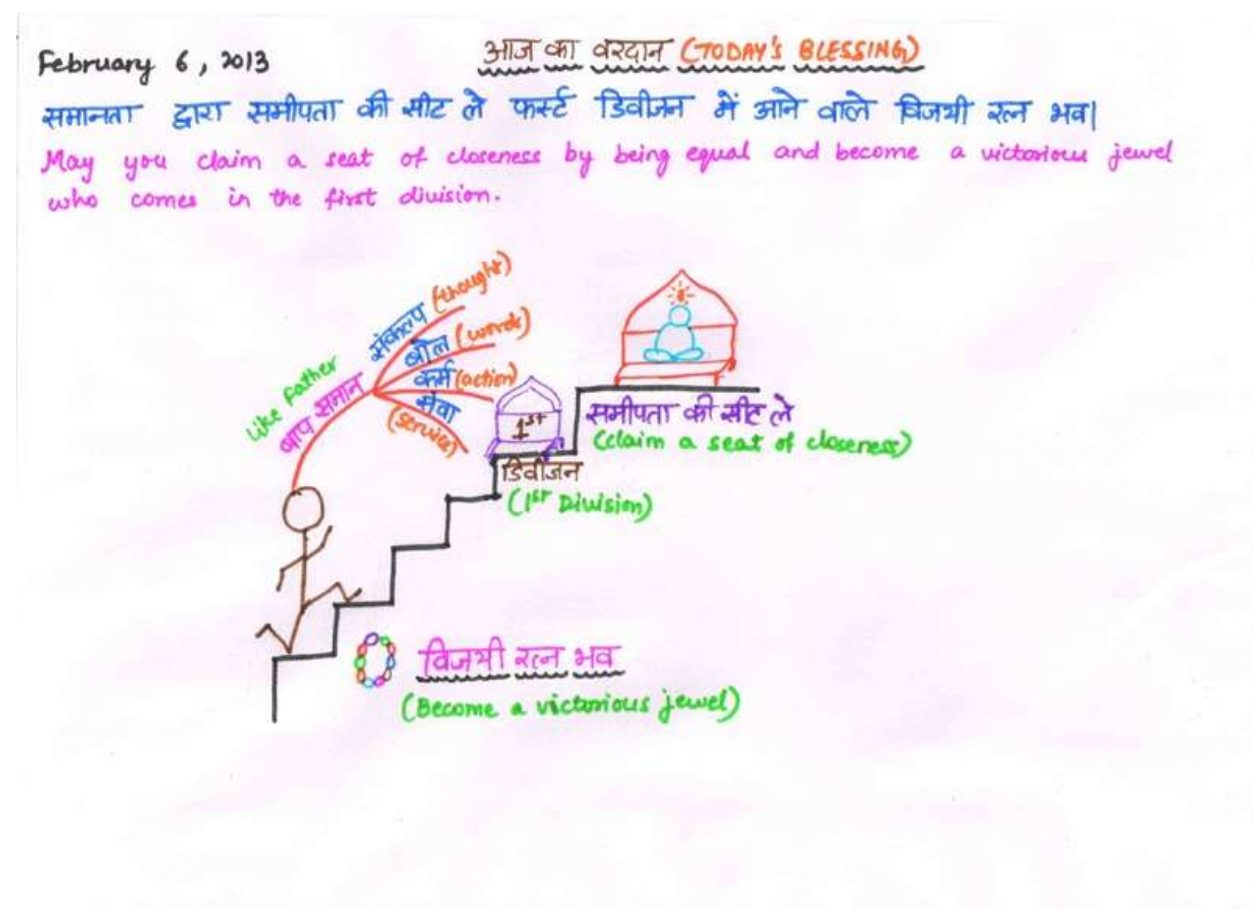 February 6, 2013
आज का वरदान (TODAY'S BLESSING)
समानता द्वारा समीपता की सीट ले फर्स्ट डिवीजन में आने वाले विजयी रत्न भव|
May you claim a seat of closeness by being equal and become a victorious jewel
who comes in the first division.
Like Father
बाप समान
संकल्प (thought)
बोल (words)
कर्म (action)
सेवा
(service)
1st
डिवीजन
(1st Division)
समीपता की सीट ले
(claim a seat of closeness)
विजयी रत्न भव
(Become a victorious jewel)